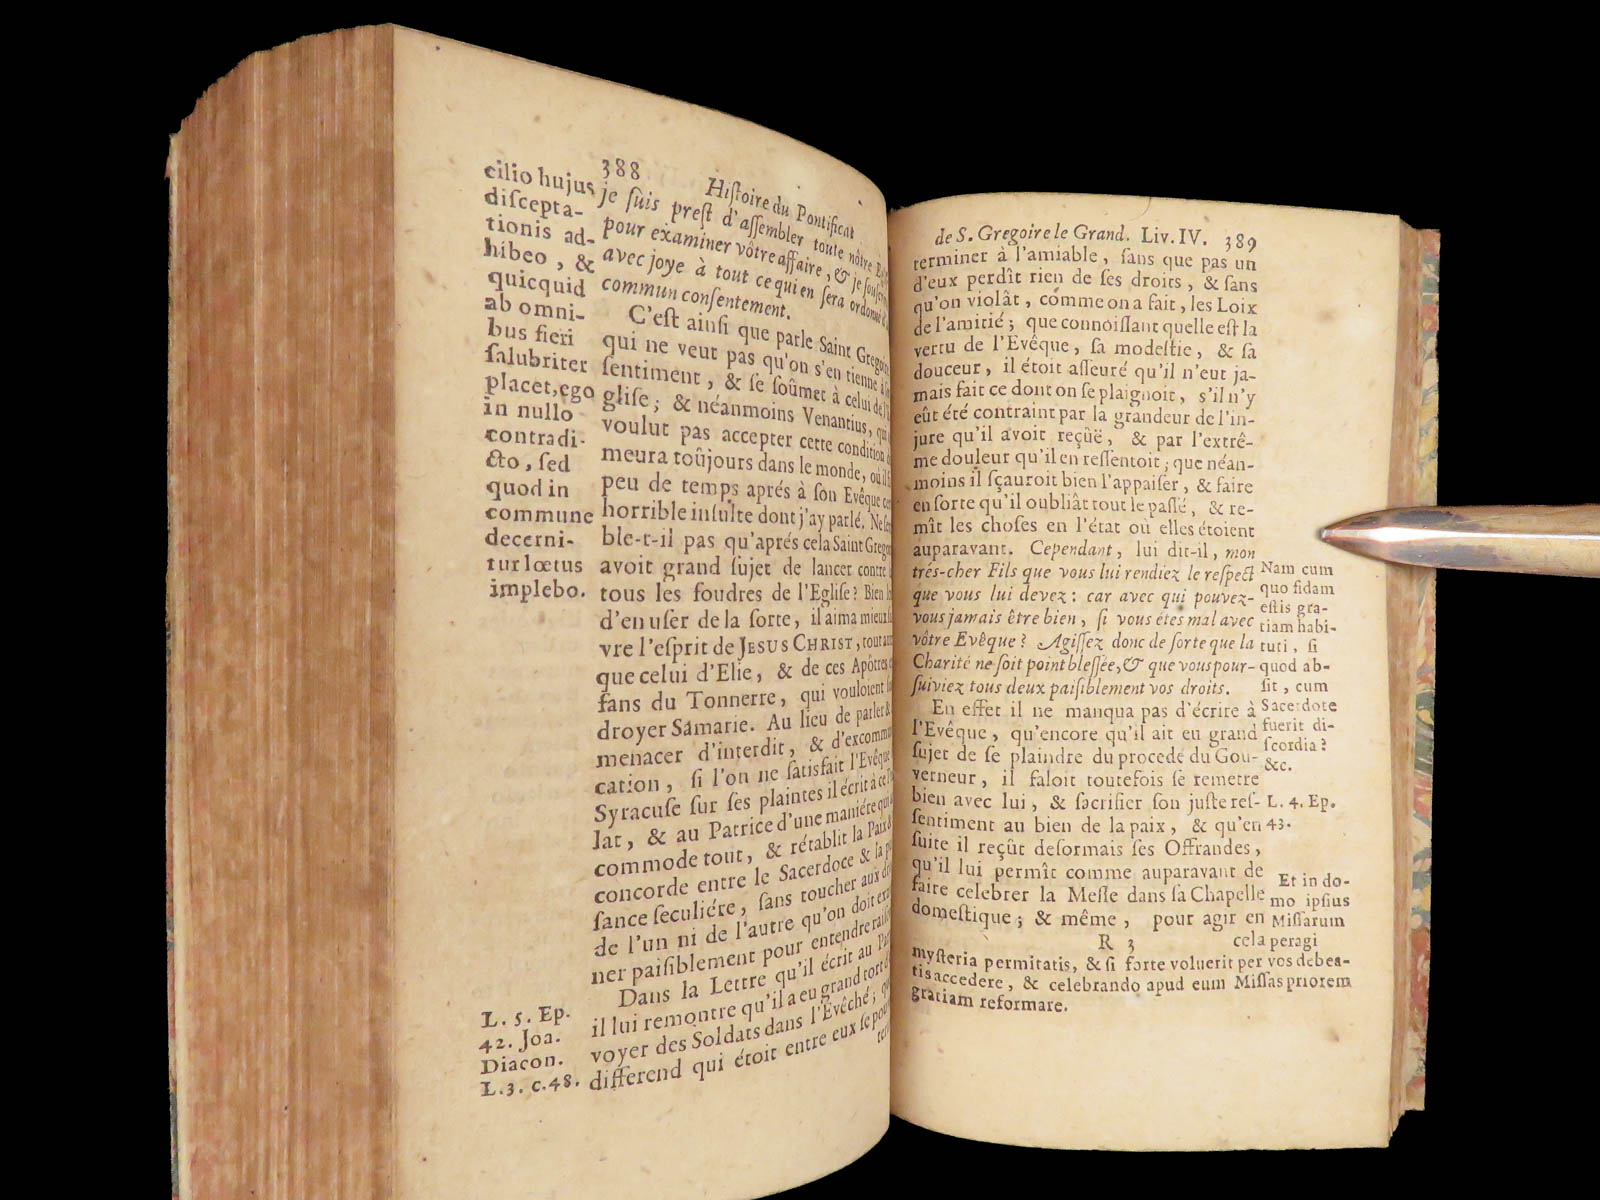 388
Hiſtoire du Pontificat
je ſuis preſt d'aſſembler toute nôtre
pour examiner vôtre affaire, & je
avec joye à tout ce qui en ſera ordonné
commun conſentement.
C'eſt ainſi que parle Saint
qui ne veut pas qu'on s'en tienne à
ſentiment, & ſe ſoûmet à celui de
gliſe; & néanmoins Venantius,
voulut pas accepter cette condition
meura toûjours dans le monde, où il
peu de temps aprés à ſon Evêque
horrible inſulte dont j'ay parlé.
ble-t-il pas qu'aprés cela Saint
avoit grand ſujet de lancer contre
tous les foudres de l'Egliſe? Bien
d'en uſer de la ſorte, il aima mieux
vre l'eſprit de JESUS CHRIST,
que celui d'Elie, & de ces Apôtres
fans du Tonnerre, qui vouloient
droyer Samarie. Au lieu de parler
menacer d'interdit, &
cation, ſi l'on ne ſatisfait l'Evêque
Syracuſe ſur ſes plaintes il écrit à ce
lat, & au Patrice d'une maniére
commode tout, & rétablit la Paix
concorde entre le Sacerdoce & la
ſance ſeculiére, ſans toucher aux
de l'un ni de l'autre qu'on doit
ner paiſiblement pour entendre
Dans la Lettre qu'il écrit au
il lui remontre qu'il a eu grand tort
voyer des Soldats dans l'Evêché;
differend qui étoit entre eux ſe
cilio hujus
diſcepta-
tionis ad-
hibeo, &
quicquid
ab omni-
bus fieri
ſalubriter
placet, ego
in nullo
contradi-
cto, ſed
quod in
commune
decerni-
tur lœtus
implebo.
L. 5. Ep.
42. Joa.
Diacon.
L. 3. c. 48.
de S. Gregoire le Grand. Liv. IV. 389
terminer à l'amiable, ſans que pas un
d'eux perdît rien de ſes droits, & ſans
qu'on violât, comme on a fait, les Loix
de l'amitié; que connoiſſant quelle eſt la
vertu de l'Evêque, ſa modeſtie, & ſa
douceur, il étoit aſſeuré qu'il n'eut ja-
mais fait ce dont on ſe plaignoit, s'il n'y
eût été contraint par la grandeur de l'in-
jure qu'il avoit reçûë, & par l'extrê-
me douleur qu'il en reſſentoit; que néan-
moins il ſçauroit bien l'appaiſer, & faire
en ſorte qu'il oubliât tout le paſſé, & re-
mît les choſes en l'état où elles étoient
auparavant. Cependant, lui dit-il, mon
trés-cher Fils que vous lui rendiez le reſpect
que vous lui devez: car avec qui pouvez-
vous jamais être bien, ſi vous étes mal avec
vôtre Evêque? Agiſſez donc de ſorte que la
Charité ne ſoit point bleſſée, & que vous pour-
ſuiviez tous deux paiſiblement vos droits.
En effet il ne manqua pas d'écrire à
l'Evêque, qu'encore qu'il ait eu grand
ſujet de ſe plaindre du procedé du Gou-
verneur, il faloit toutefois ſe remetre
bien avec lui, & ſacrifier ſon juſte reſ-
ſentiment au bien de la paix, & qu'en
ſuite il reçût deſormais ſes Offrandes,
qu'il lui permît comme auparavant de
faire celebrer la Meſſe dans ſa Chapelle
domeſtique; & même, pour agir en
R 3 cela
Nam cum
quo fidam
eſtis gra-
tiam habi-
tuti, ſi
quod ab-
ſit, cum
Sacerdote
fuerit di-
ſcordia?
&c.
L. 4. Ep.
43.
Et in do-
mo ipſius
Miſſarum
peragi
myſteria permitatis, & ſi forte voluerit per vos debea-
tis accedere, & celebrando apud eum Miſſas priorem
gratiam reformare.